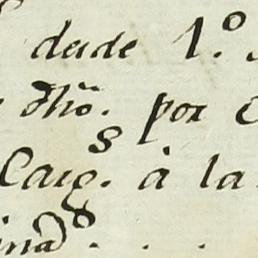 desde 1.º
dho. por
Caig.s à la
inad.